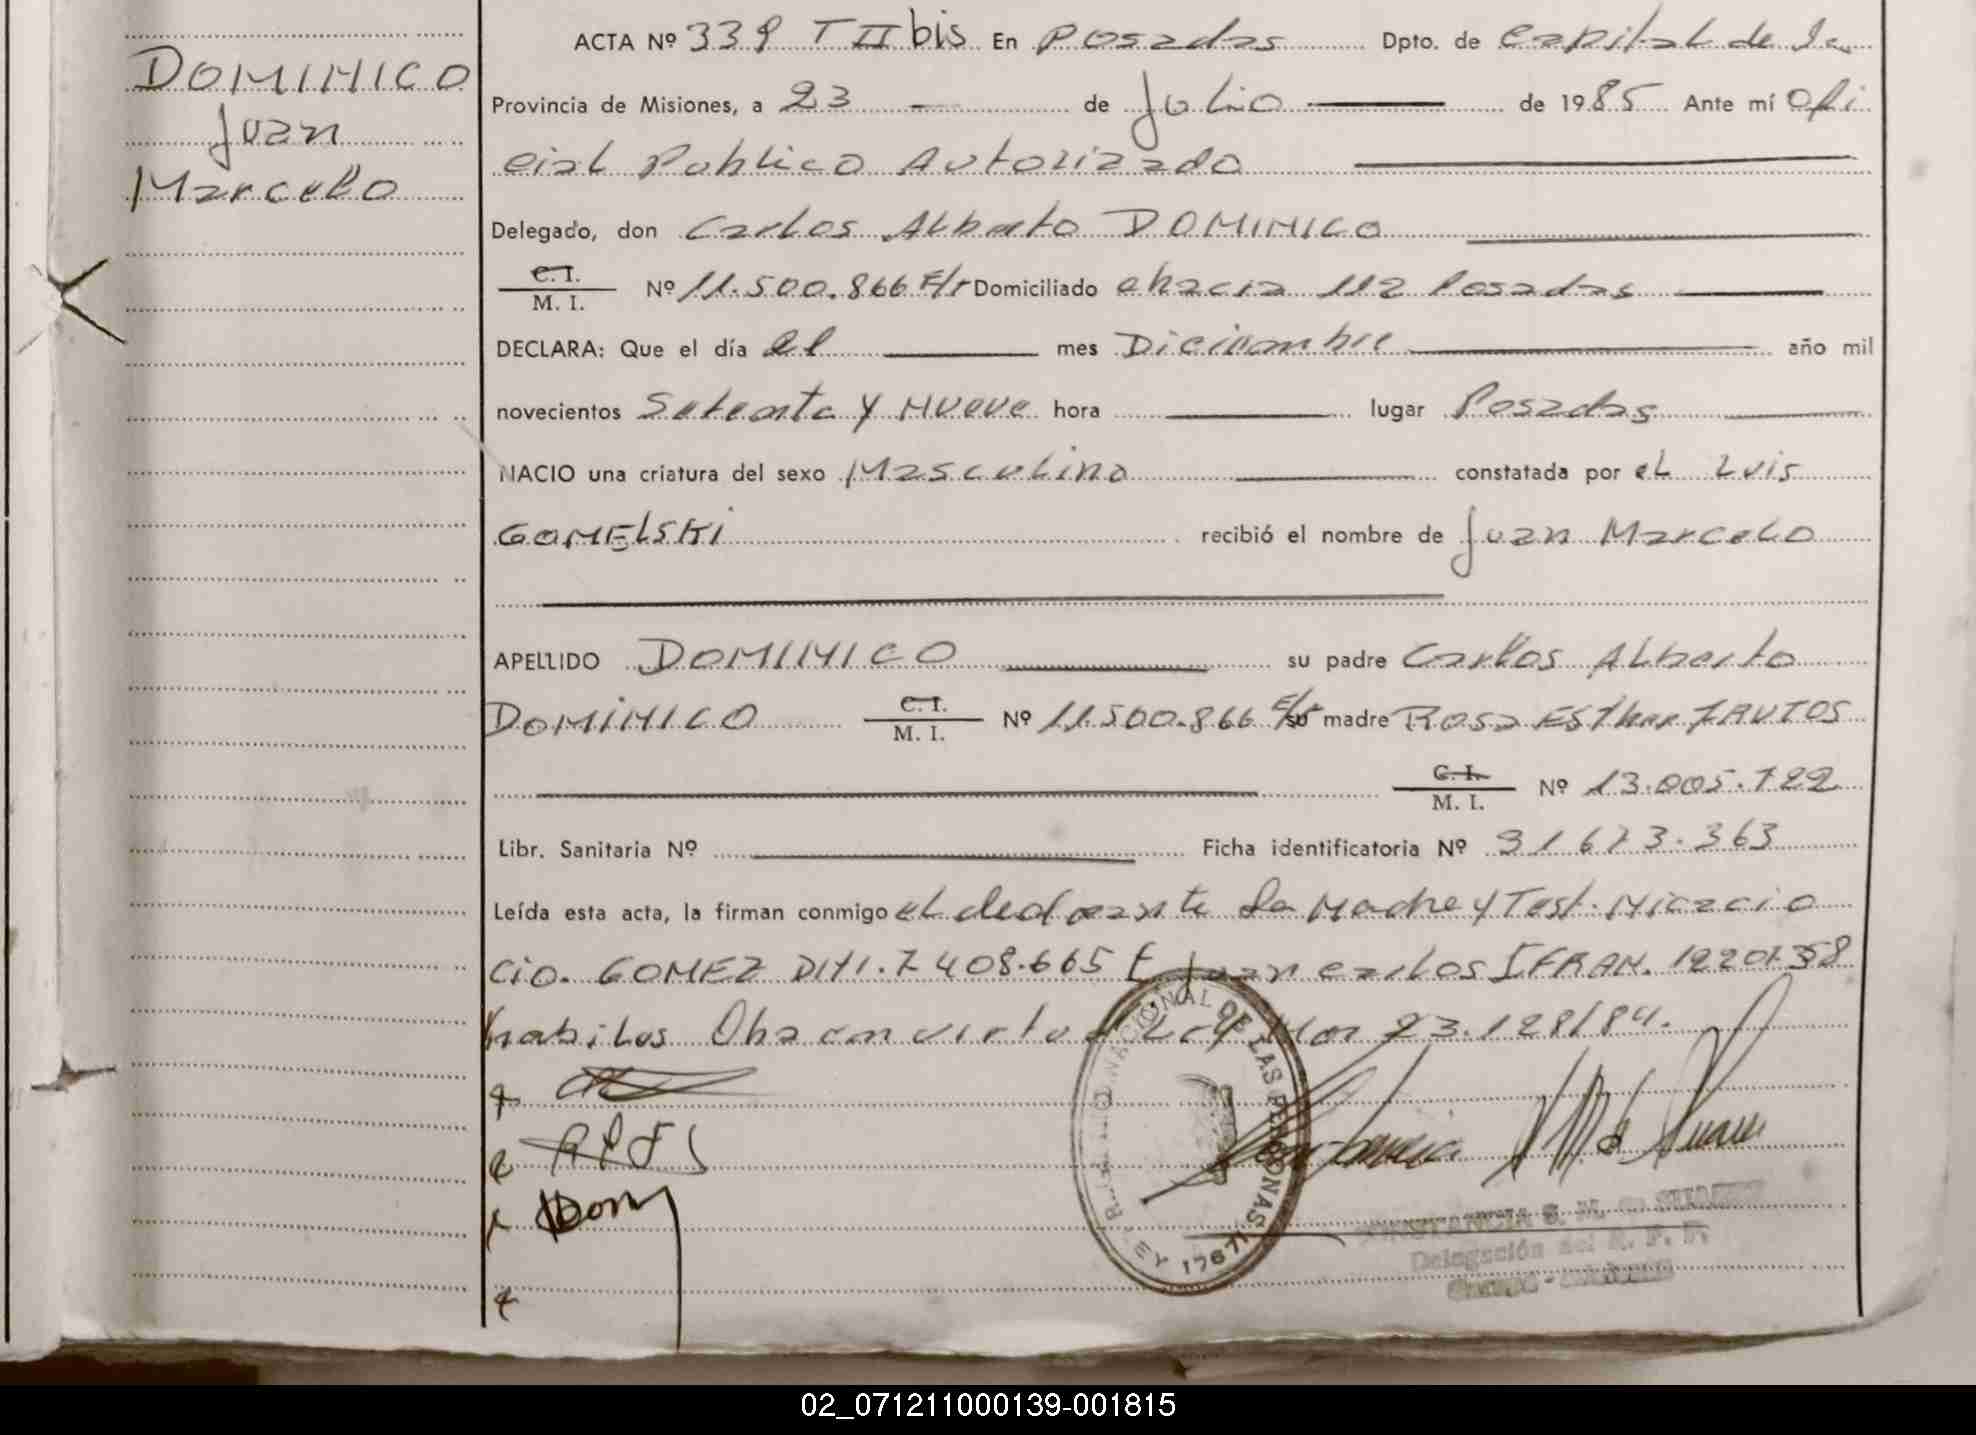 DOMINICO
Juan
Marcelo
ACTA Nº 339 T II bis En Posadas Dpto. de Capital de la
Provincia de Misiones, a 23 de Julio de 1985 Ante mí Ofi
cial Publico Autorizado
Delegado, don Carlos Alberto DOMINICO
C. I. / M. I. Nº 11.500.866 E/t Domiciliado chacra 112 Posadas
DECLARA: Que el día mes Diciembre año mil
novecientos Setenta y Nueve hora lugar Posadas
NACIO una criatura del sexo Masculino constatada por el Luis
GOMELSKI recibió el nombre de Juan Marcelo
APELLIDO DOMINICO su padre Carlos Alberto
DOMINICO C. I. / M. I. Nº 11.500.866 E/t su madre Rosa Esther
C. I. / M. I. Nº 13.005.722
Libr. Sanitaria Nº Ficha identificatoria Nº 31673.363
Leída esta acta, la firman conmigo el declarante La Madre y Test.
GOMEZ 7408.665 E Juan Carlos IFRAN.
habiles Obra en virtud Ley Nor 23.128/84.
REGISTRO NACIONAL DE LAS PERSONAS
CONSTANCIA S. M. de SUAREZ
Delegación del R. P. P.
02_071211000139-001815